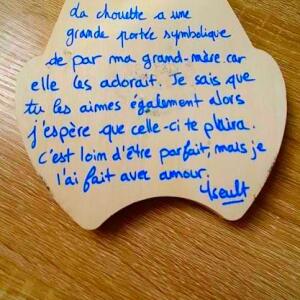 La chouette a une
grande portée symbolique
de par ma grand-mère car
elle les adorait. Je sais que
tu les aimes également alors
j'espère que celle-ci te plaira.
C'est loin d'être parfait, mais je
l'ai fait avec amour.
Yseult